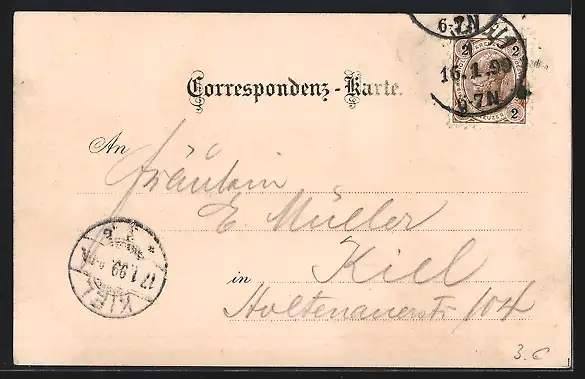 6-7N
16.1.99
6-7N
2 2
2
Correspondenz-Karte.
An
Fräulein
E. Müller
in Kiel
Holtenauerstr. 104
KIEL
17.1.99
3.C